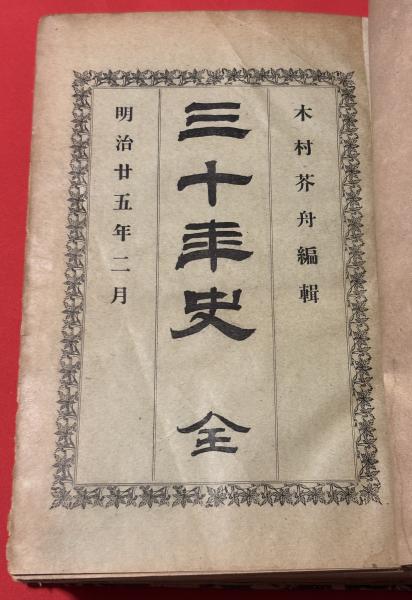 木村芥舟編輯
三十年史 全
明治廿五年二月